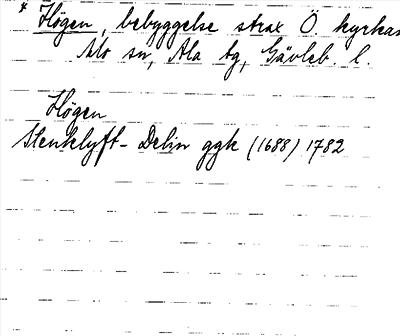 * Högen, bebyggelse strax Ö. kyrkan
Alo sn, Ala tg, Gävleb. l.
Högen
Stenklyft - Delin ggk (1688) 1782